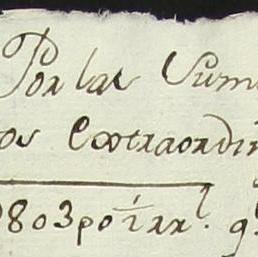 Por las Sum
os Extraordin
803 po ½ rrl. q